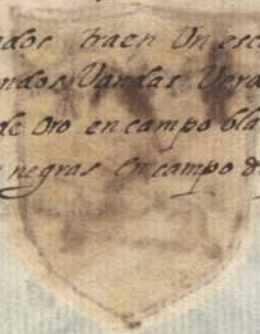 ados traen Un esc
ndos Vandas Verd
de Oro en campo bla
negras en campo d